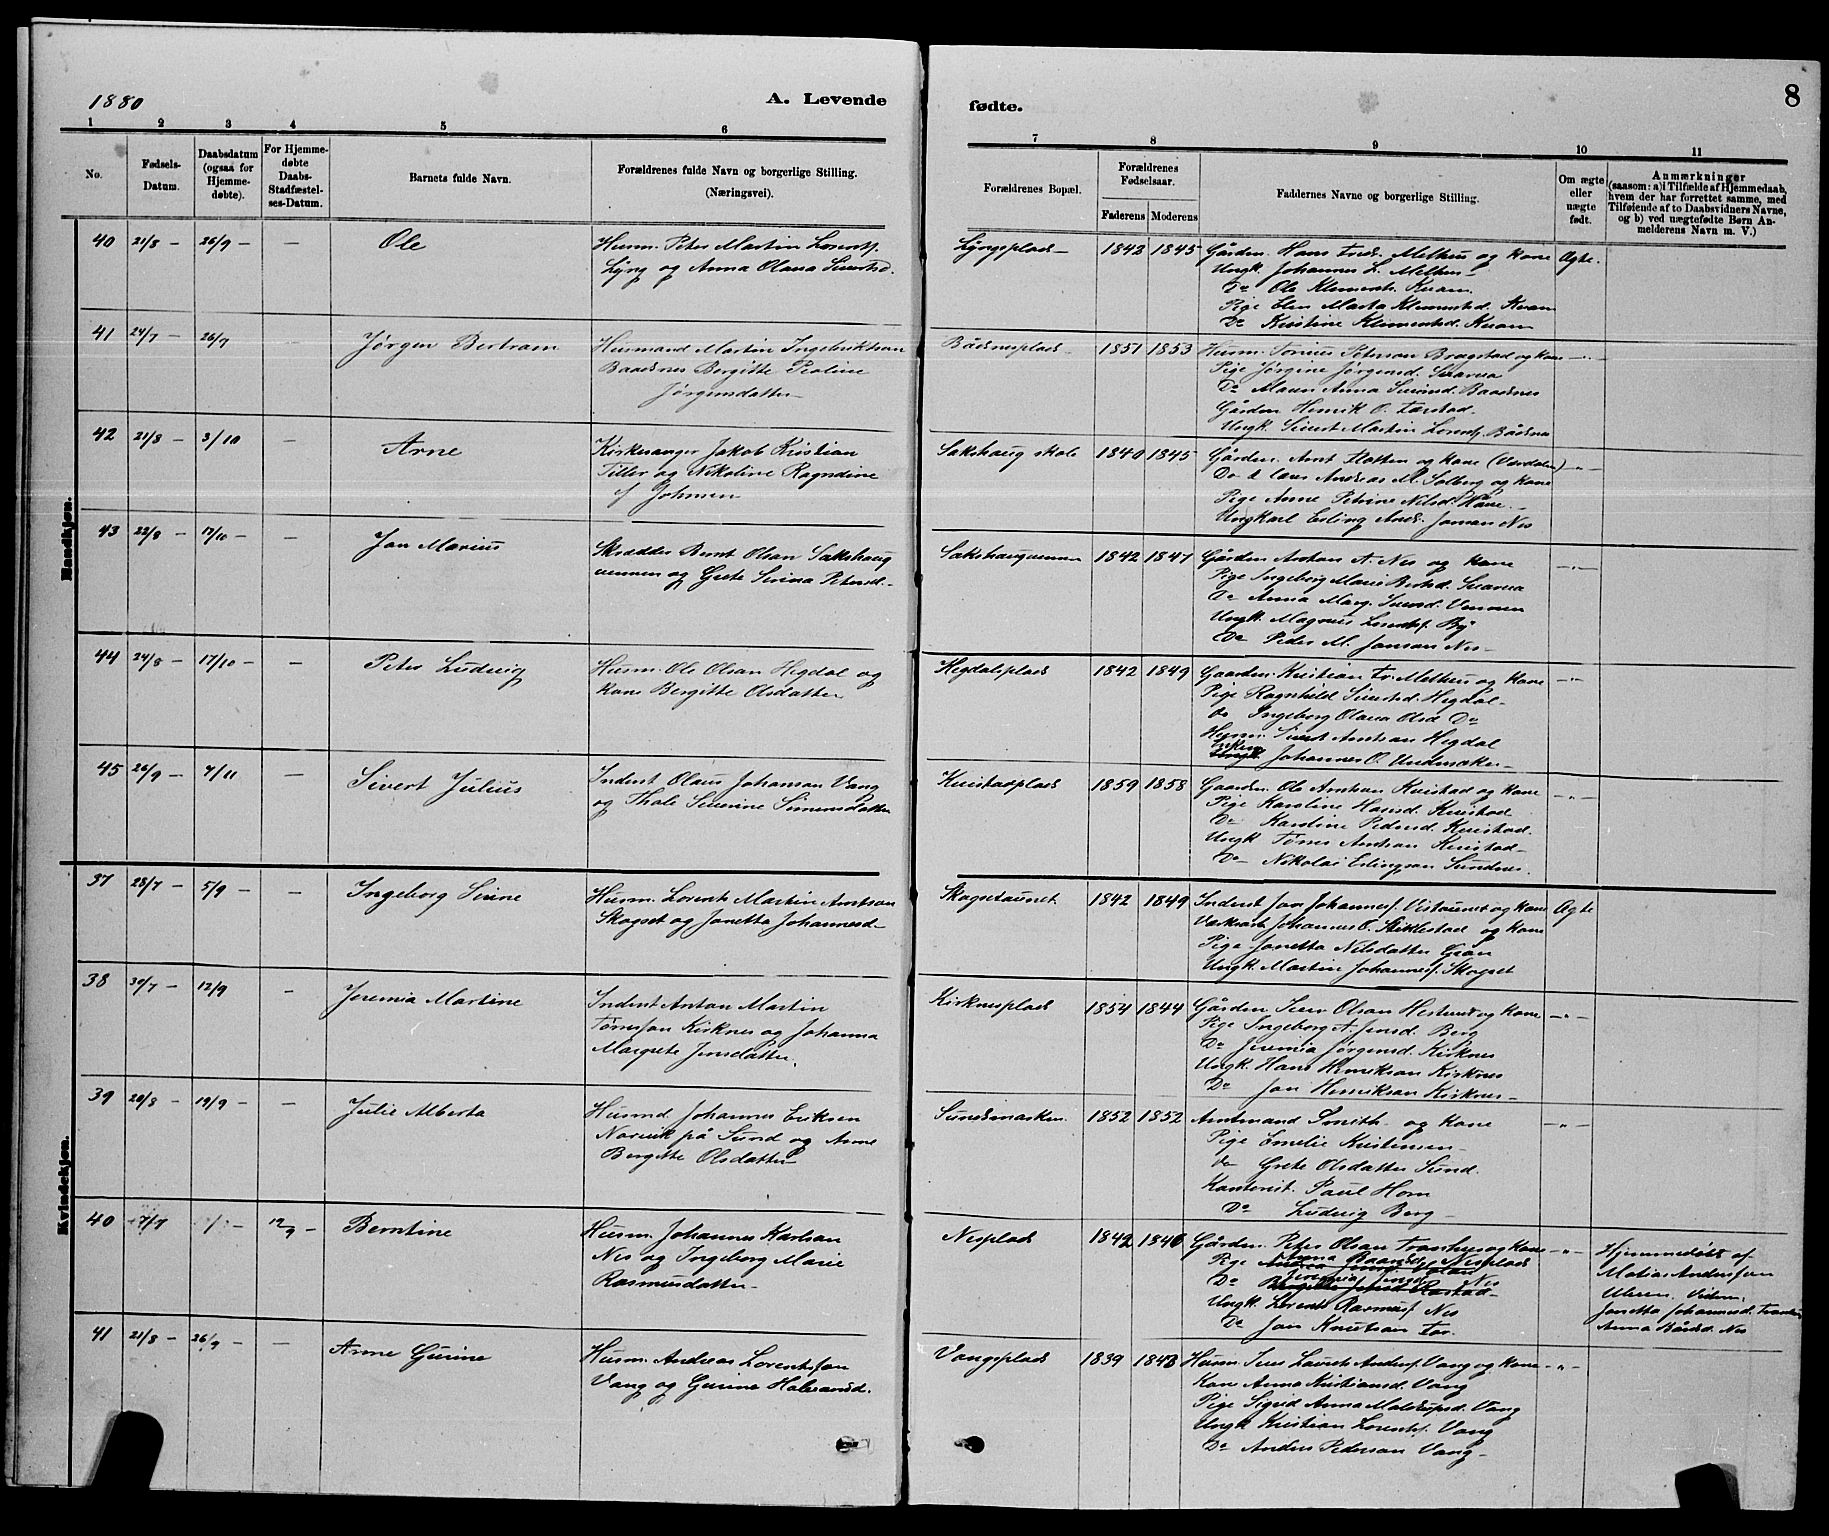 1880
A. Levende
fødte.
8
1 2 3 4 5 6 7 8 9 10 11
No.
Fødsels-
Datum.
Daabsdatum
(ogsaa for
Hjemme-
døbte).
For Hjemme-
døbte
Daabs-
Stadfæstel-
ses-Datum.
Barnets fulde Navn.
Forældrenes fulde Navn og borgerlige Stilling.
(Næringsvei).
Forældrenes Bopæl.
Forældrenes
Fødselsaar.
Faderens Moderens
Faddernes Navne og borgerlige Stilling.
Om ægte
eller
uægte
født.
Anmærkninger
(saasom: a) i Tilfælde af Hjemmedaab,
hvem der har forrettet samme, med
Tilføiende af to Daabsvidners Navne,
og b) ved uægtefødte Børn An-
melderens Navn m. V.)
Mandkjøn.
40 21/8 – 26/9 – – Ole
Husm. Peter Martin Lorentsf.
Lyng og Anna Olava Siversd.
Lyngsplads 1842 1845
Gården. Hans Fred. Melhus og kone Ægte.
Ungk. Johannes L. Melhus
Do Ole Klemetsf. Kvam
Pige Elen Marta Klemetsd. Kvam
Do Kristine Klemetsd. Kvam
41 24/7 – 26/7 – Jørgen Bertram
Husmand Martin Ingebriktson
Baadsnes Bergitte Paoline
Jørgensdatter
Bådsnesplads 1851 1853
Husm. Petersen Bragstad og kone –"–
Pige Jørgine Jørgensd.
Do Maren Anna Baadsnes
Gården Henrik O. Tærstad.
Ungk. Sivert Martin Lorentsf. Bådsnes
42 21/8 – 3/10 – Arne
Kirkesanger Jakob Kristian
Tiller og Nikoline Ragndine
f Johnsen
Sakshaug skole 1840 1845
Gården. Arnt Flotten og kone (Værdalen) –"–
Do & Andreas M. Solberg og kone
Pige Anne Petrine Nilsd.
Ungkarl Erling Andr. Jonsen Nes
43 22/8 – 17/10 – – Jon Marius
Skrædder Bernt Olsen Sakshaug
vennen og Grete Serina Petersd.
Sakshaugvennen 1842 1847
Gården Anton A. Nes og kone –"–
Pige Ingeborg Marie Berntsd.
Do Anna Marg. Sversd. Vennen
Ungk. Magnus Lorentsf. By
Do Peder M. Jonson Nes
44 24/8 – 17/10 – – Peter Ludvig
Husm. Ole Olsen Hegdal og
kone Bergitte Olsdatter
Hegdalsplads 1842 1849
Gaarden. Kristian Fr. Melhus og kone –"–
Pige Ragnhild Siversd. Hegdal
do Ingeborg Olava Olsd Do
Husm. Sivert Arntsen Hegdal
Johannes O.
45 26/9 – 7/11 – Sivert Julius
Inderst Olaus Johanson Vang
og Thale Severine Simonsdatter
Kvistadplads 1859 1858
Gaarden. Ole Arntsen Kvistad og kone –"–
Pige Karoline Hansd. Kvistad
Do Karoline Pedersd. Kvistad.
Ungk. Tørris Arntsen Kvistad
Do Nikolai Erlingson Sundnes.
Kvindekjøn.
37 28/7 – 5/9 – – Ingeborg Sirine
Husm. Lorents Martin Arntson
Skogset og Jonetta Johannesd
Skogsetaunet 1842 1849
Inderst Jon Johannesf. Vistaunet og kone Ægte
Johannes O. Stiklestad og kone
Pige Jonetta Nilsdatter Gran
Ungk. Martin Johannesf. Skogset
38 30/7 – 12/9 – Jeremia Martine
Inderst Anton Martin
Tørresson Kirknes og Johanna
Margrete Jensdatter.
Kirknesplads 1854 1844
Gården. Iver Olsen Hestnes og kone –"–
Pige Ingeborg A. Jensd. Berg
Do Jeremia Jørgensd. Kirknes
Ungk. Hans Henriksen Kirknes
Do Jon Henriksen Kirknes
39 20/8 – 19/9 – – Julie Alberta
Husmd. Johannes Eriksen
Norvik på Sund og Anne
Bergitte Olsdatter
Sundsmarken 1852 1852
Amtmand Smith og kone –"–
Pige Emelie Kristensen
do Grete Olsdatter Sund.
Kontorist. Paul Horn
Do Ludvig Berg
40 7/7 12/9 – Berntine
Husm. Johannes Karlsen
Nes og Ingeborg Marie
Rasmusdatter
Nesplads 1842 1846
Gården. Peter Olsen Tranhus og kone –"–
Pige Anna Baardsd. Nesplads
Do Jeremia Jensd. Nes
Ungk. Lorents Rasmusf. Nes
Do Jon Knutsen
Hjemmedøbt af
Matias Andersson
Ulven. Vidner.
Jonetta Johannesd.
Anna Bårdsd. Nes
41 21/8 – 26/9 – – Anne Gurine
Husm. Andreas Lorentsson
Vang og Gurina Halvarsd.
Vangsplads 1839 1843
Husm. Lorents Andersf. Vang og kone –"–
Kone Anna Kristiansd. Vang
Pige Sigrid Anna Vang
Ungk Kristian Lorentsf. Vang
Do Anders Pederson Vang